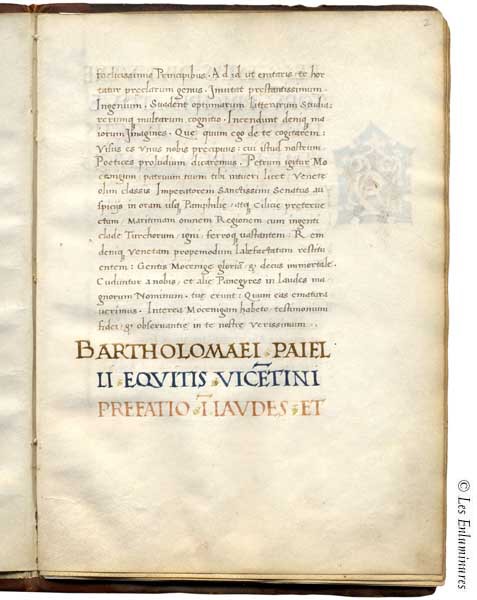 2
foelicissimis Principibus. Ad id ut enitaris. te hor
tatur preclarum genus. Inuitat prestantissimum
Ingenium. Suadent optimarum litterarum Studia:
rerumq multarum cognitio. Incendunt deniq ma
iorum Imagines. Que quum ego de te cogitarem:
Visus es vnus nobis precipuus: cui istud nostrum
Poetices proludium dicaremus. Petrum igitur Mo
cenigum patruum tuum tibi intueri licet. Venete
olim classis Imperatorem Sanctissimi Senatus au
spicijs in oram usq Pamphilie, atq Cilicie preterue
ctum. Maritimam omnem Regionem cum ingenti
clade Turchorum, igni, ferroq uastantem: Rem
deniq Venetam propemodum labefactatam restitu
entem: Gentis Mocenige gloriā: & decus immortale.
Cuduntur a nobis, et alie Panegyres in laudes ma
gnorum Nominum, tuę erunt: Quum eas ematura
uerimus. Interea Mocenigam habeto, testimonium
fidei, & obseruantie in te nostre verissimum.
BARTHOLOMAEI PAIEL
LI EQVITIS VICĒTINI
PREFATIO Ī LAVDES ET
© Les Enluminures